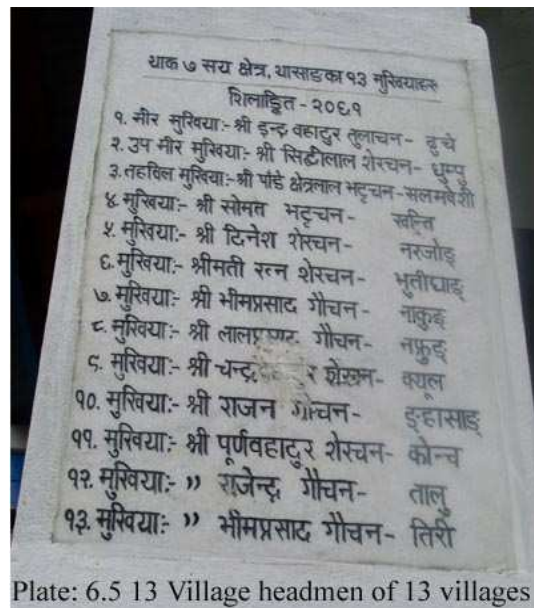 थाक ७ सय क्षेत्र, थासाङका १३ मुखियाहरु
शिलाङ्कित - २०६१
१. मीर मुखियाः- श्री इन्द्र वहादुर तुलाचन - ढुचे
२. उप मीर मुखियाः- श्री सिद्धीलाल शेरचन - धुम्पु
३. तहविल मुखियाः- श्री पाँडे क्षेत्रलाल भट्टचन - सलमवेशी
४. मुखियाः- श्री सोमत भट्टचन - खन्ति
५. मुखियाः- श्री दिनेश शेरचन - नरजोङ
६. मुखियाः- श्रीमती रत्न शेरचन - भुतीघाङ
७. मुखियाः- श्री भीमप्रसाद गौचन - नाकुङ
८. मुखियाः- श्री गौचन - नफ्रुङ
९. मुखियाः- श्री शेरचन - क्यूल
१०. मुखियाः- श्री राजन गौचन - ङ्हासाङ
११. मुखियाः- श्री पूर्णवहादुर शेरचन - कोन्च
१२. मुखियाः- ,, राजेन्द्र गौचन - तालु
१३. मुखियाः- ,, भीमप्रसाद गौचन - तिरी
Plate: 6.5 13 Village headmen of 13 villages